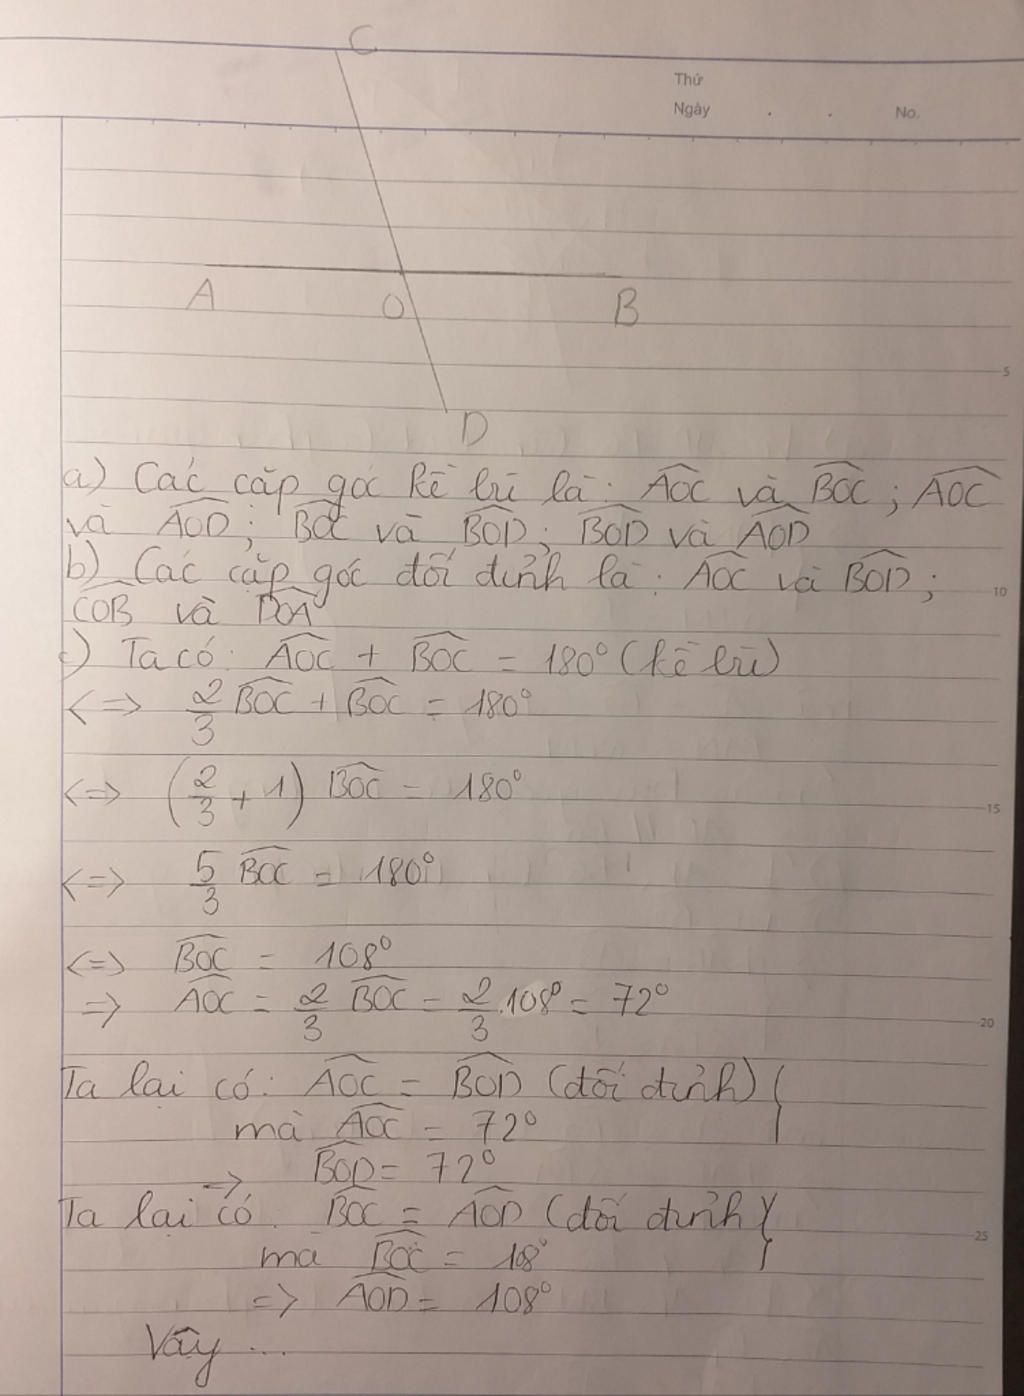 C
Thứ
Ngày . . No.
A O B
5
D
a) Các cặp góc kề bù là: AOC và BOC; AOC
và AOD; BOC và BOD; BOD và AOD
b) Các cặp góc đối đỉnh là: AOC và BOD;
10
COB và DOA
c) Ta có: AOC + BOC = 180° (kề bù)
<=> 2/3 BOC + BOC = 180°
<=> (2/3 + 1) BOC = 180°
15
<=> 5/3 BOC = 180°
<=> BOC = 108°
=> AOC = 2/3 BOC = 2/3 . 108° = 72°
20
Ta lại có: AOC = BOD (đối đỉnh) }
mà AOC = 72°
=> BOD = 72°
Ta lại có: BOC = AOD (đối đỉnh) }
25
mà BOC = 108°
=> AOD = 108°
Vậy ...